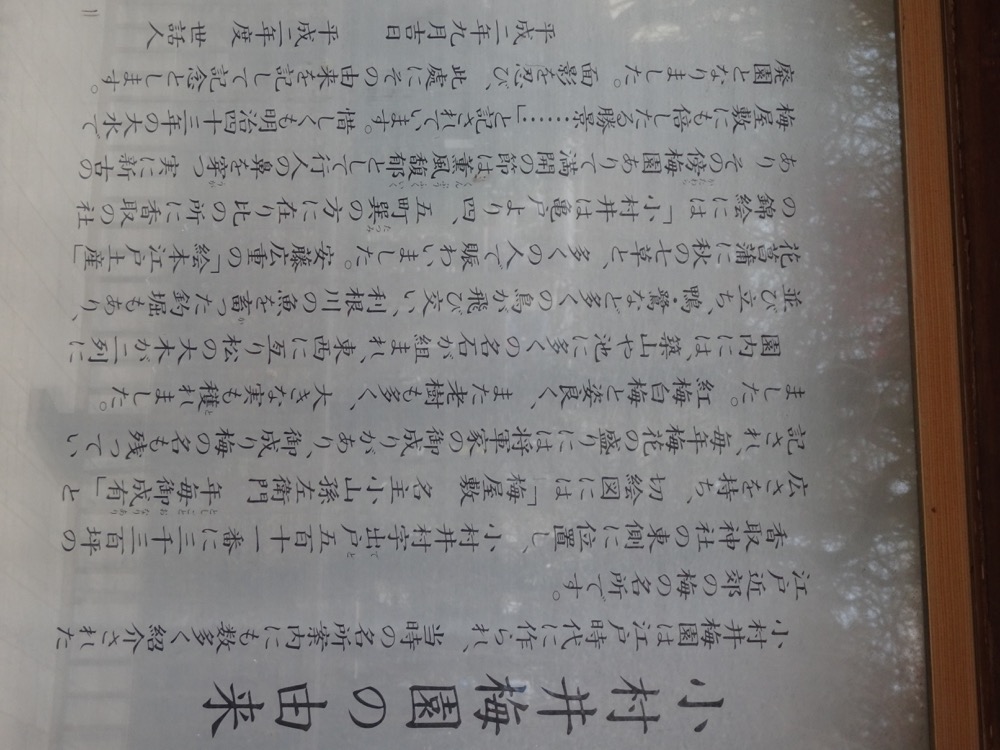 小村井梅園の由来
小村井梅園は江戸時代に作られ、当時の名所案内にも数多く紹介された
江戸近郊の梅の名所です。
香取神社の東側に位置し、小村井村字出戸五百十一番に三千三百坪の
広さを持ち、切絵図には「梅屋敷 名主小山孫左衛門 年毎御成有」と
記され、毎年梅花の盛には将軍家の御成りがあり、御成り梅の名も残ってい
ました。紅梅白梅と姿良く、また老樹も多く、大きな実も穫れました。
園内には築山や池に多くの名石が組まれ、東西に亙り松の大木が二列に
並び立ち、鴨・鷺など多くの鳥が飛び交い、利根川の魚を畜った釣堀もあり、
花菖蒲に秋の七草と、多くの人で賑わいました。安藤広重の「絵本江戸土産」
の錦絵には「小村井は亀戸より四、五町巽の方に在り比の所に香取の社
ありその傍梅園ありて満開の節は薫風馥郁として行人の鼻を穿つ実に新古の
梅屋敷にも倍したる勝景……」と記されています。惜しくも明治四十三年の大水で
廃園となりました。面影を忍び、此處にその由来を記して記念とします。
平成二年九月吉日 平成二年度 世話人